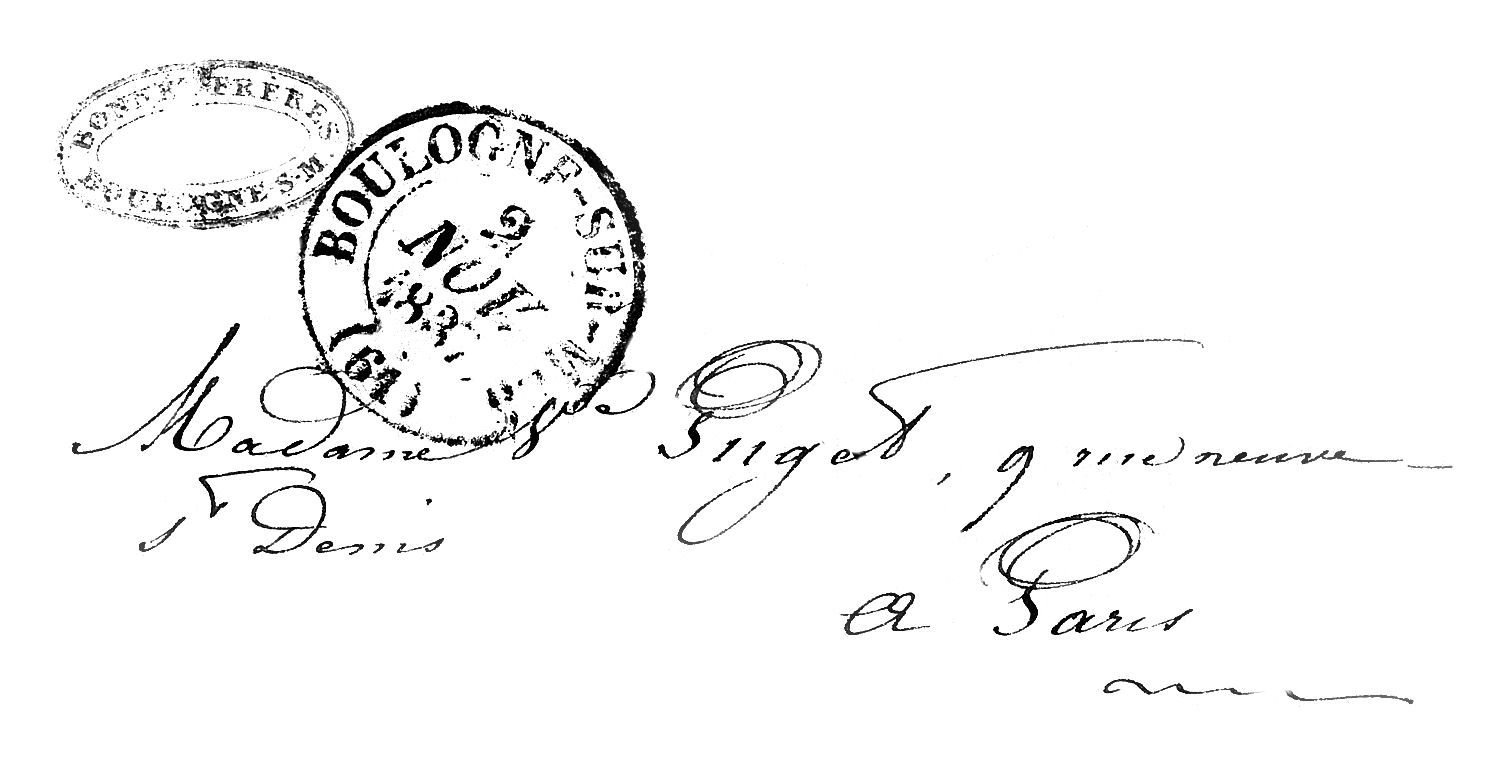 FRÈRES
BOULOGNE S-M.
BOULOGNE-SUR-MER
2
NOV
(61)
Madame Vve Puget, 9 rue neuve
St Denis
A Paris